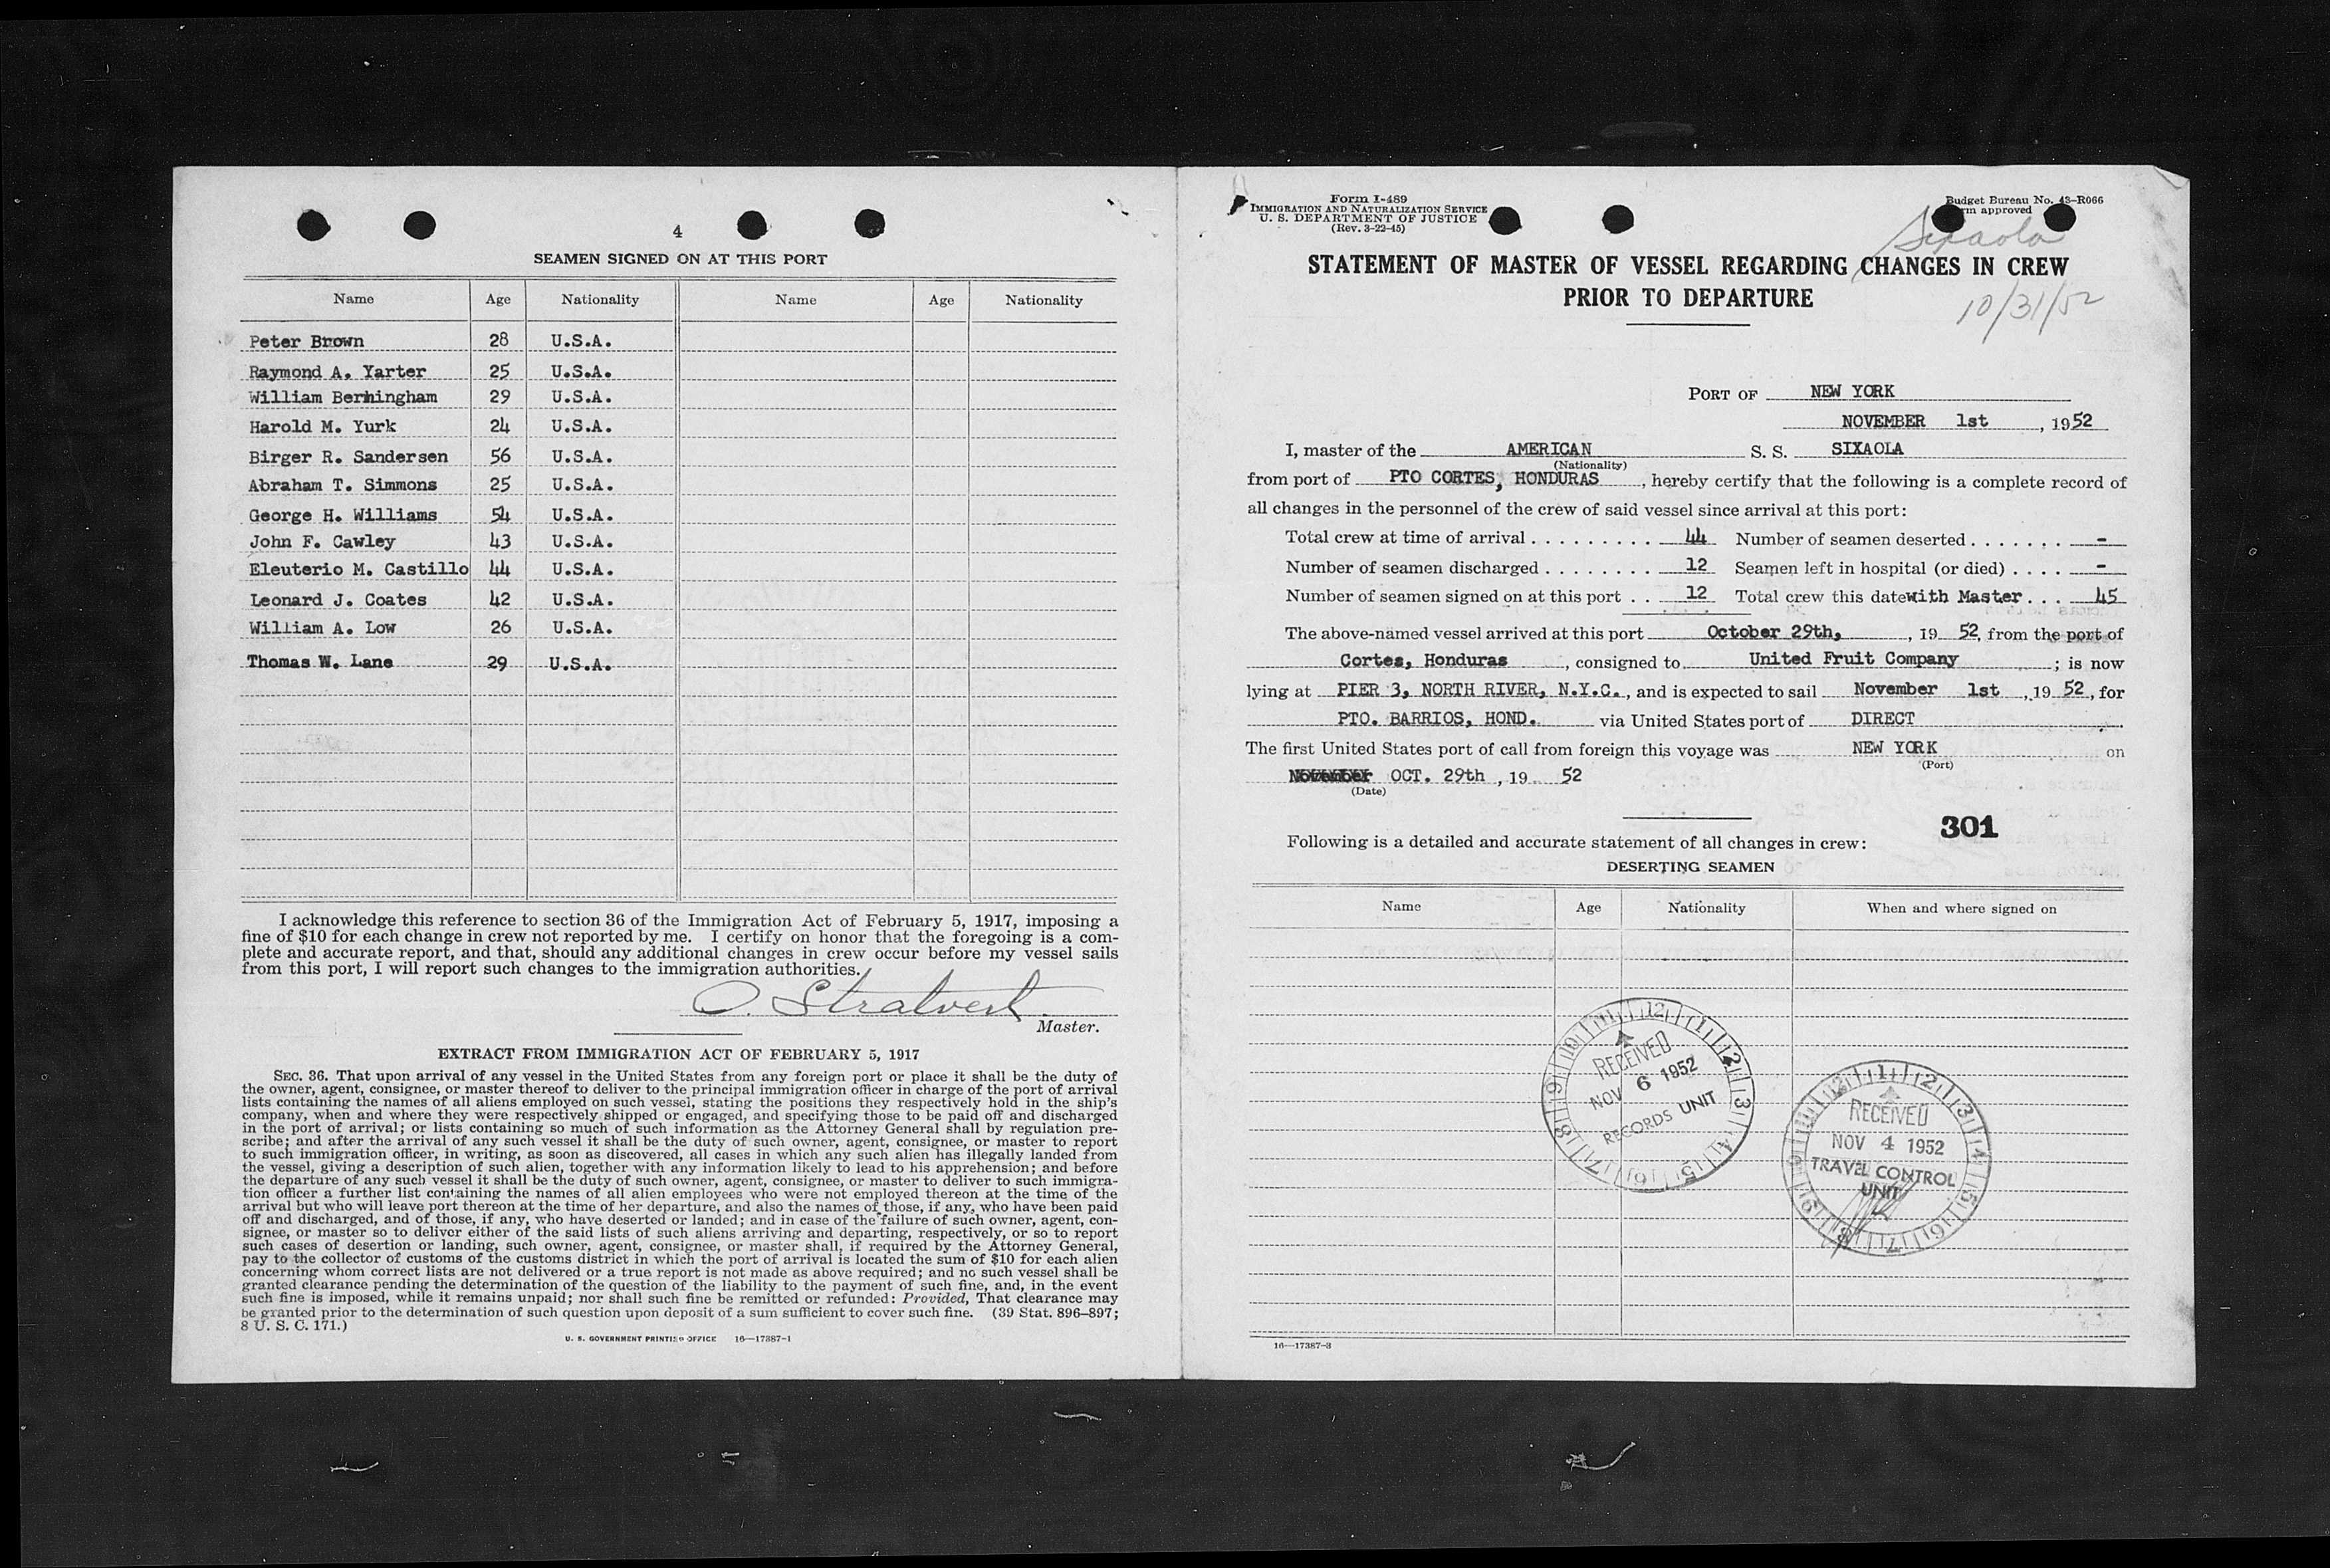 4
SEAMEN SIGNED ON AT THIS PORT
Name Age Nationality Name Age Nationality
Peter Brown 28 U.S.A.
Raymond A. Yarter 25 U.S.A.
William Bermingham 29 U.S.A.
Harold M. Yurk 24 U.S.A.
Birger R. Sandersen 56 U.S.A.
Abraham T. Simmons 25 U.S.A.
George H. Williams 54 U.S.A.
John F. Cawley 43 U.S.A.
Eleuterio M. Castillo 44 U.S.A.
Leonard J. Coates 42 U.S.A.
William A. Low 26 U.S.A.
Thomas W. Lane 29 U.S.A.
I acknowledge this reference to section 36 of the Immigration Act of February 5, 1917, imposing a
fine of $10 for each change in crew not reported by me. I certify on honor that the foregoing is a com-
plete and accurate report, and that, should any additional changes in crew occur before my vessel sails
from this port, I will report such changes to the immigration authorities.
O. Stratvert
Master.
EXTRACT FROM IMMIGRATION ACT OF FEBRUARY 5, 1917
SEC. 36. That upon arrival of any vessel in the United States from any foreign port or place it shall be the duty of
the owner, agent, consignee, or master thereof to deliver to the principal immigration officer in charge of the port of arrival
lists containing the names of all aliens employed on such vessel, stating the positions they respectively hold in the ship's
company, when and where they were respectively shipped or engaged, and specifying those to be paid off and discharged
in the port of arrival; or lists containing so much of such information as the Attorney General shall by regulation pre-
scribe; and after the arrival of any such vessel it shall be the duty of such owner, agent, consignee, or master to report
to such immigration officer, in writing, as soon as discovered, all cases in which any such alien has illegally landed from
the vessel, giving a description of such alien, together with any information likely to lead to his apprehension; and before
the departure of any such vessel it shall be the duty of such owner, agent, consignee, or master to deliver to such immigra-
tion officer a further list containing the names of all alien employees who were not employed thereon at the time of the
arrival but who will leave port thereon at the time of her departure, and also the names of those, if any, who have been paid
off and discharged, and of those, if any, who have deserted or landed; and in case of the failure of such owner, agent, con-
signee, or master so to deliver either of the said lists of such aliens arriving and departing, respectively, or so to report
such cases of desertion or landing, such owner, agent, consignee, or master shall, if required by the Attorney General,
pay to the collector of customs of the customs district in which the port of arrival is located the sum of $10 for each alien
concerning whom correct lists are not delivered or a true report is not made as above required; and no such vessel shall be
granted clearance pending the determination of the question of the liability to the payment of such fine, and, in the event
such fine is imposed, while it remains unpaid; nor shall such fine be remitted or refunded: Provided, That clearance may
be granted prior to the determination of such question upon deposit of a sum sufficient to cover such fine. (39 Stat. 896–897;
8 U. S. C. 171.)
U. S. GOVERNMENT PRINTING OFFICE 16—17387-1
Form I-489
IMMIGRATION AND NATURALIZATION SERVICE
U. S. DEPARTMENT OF JUSTICE
(Rev. 3-22-45)
Budget Bureau No. 43-R066
approved
Sixaola
STATEMENT OF MASTER OF VESSEL REGARDING CHANGES IN CREW
PRIOR TO DEPARTURE
10/31/52
PORT OF NEW YORK
NOVEMBER 1st, 1952
I, master of the AMERICAN S. S. SIXAOLA
(Nationality)
from port of PTO CORTES, HONDURAS, hereby certify that the following is a complete record of
all changes in the personnel of the crew of said vessel since arrival at this port:
Total crew at time of arrival . . . . . . . . . 44 Number of seamen deserted . . . . . . . -
Number of seamen discharged . . . . . . . . 12 Seamen left in hospital (or died) . . . . -
Number of seamen signed on at this port . . 12 Total crew this date with Master . . . 45
The above-named vessel arrived at this port October 29th, , 19 52, from the port of
Cortes, Honduras , consigned to United Fruit Company ; is now
lying at PIER 3, NORTH RIVER, N.Y.C., and is expected to sail November 1st , 19 52, for
PTO. BARRIOS, HOND. via United States port of DIRECT .
The first United States port of call from foreign this voyage was NEW YORK on
(Port)
November OCT. 29th , 19 52
(Date)
301
Following is a detailed and accurate statement of all changes in crew:
DESERTING SEAMEN
Name Age Nationality When and where signed on
RECEIVED
NOV 6 1952
RECORDS UNIT
RECEIVED
NOV 4 1952
TRAVEL CONTROL
UNIT
16—17387-3